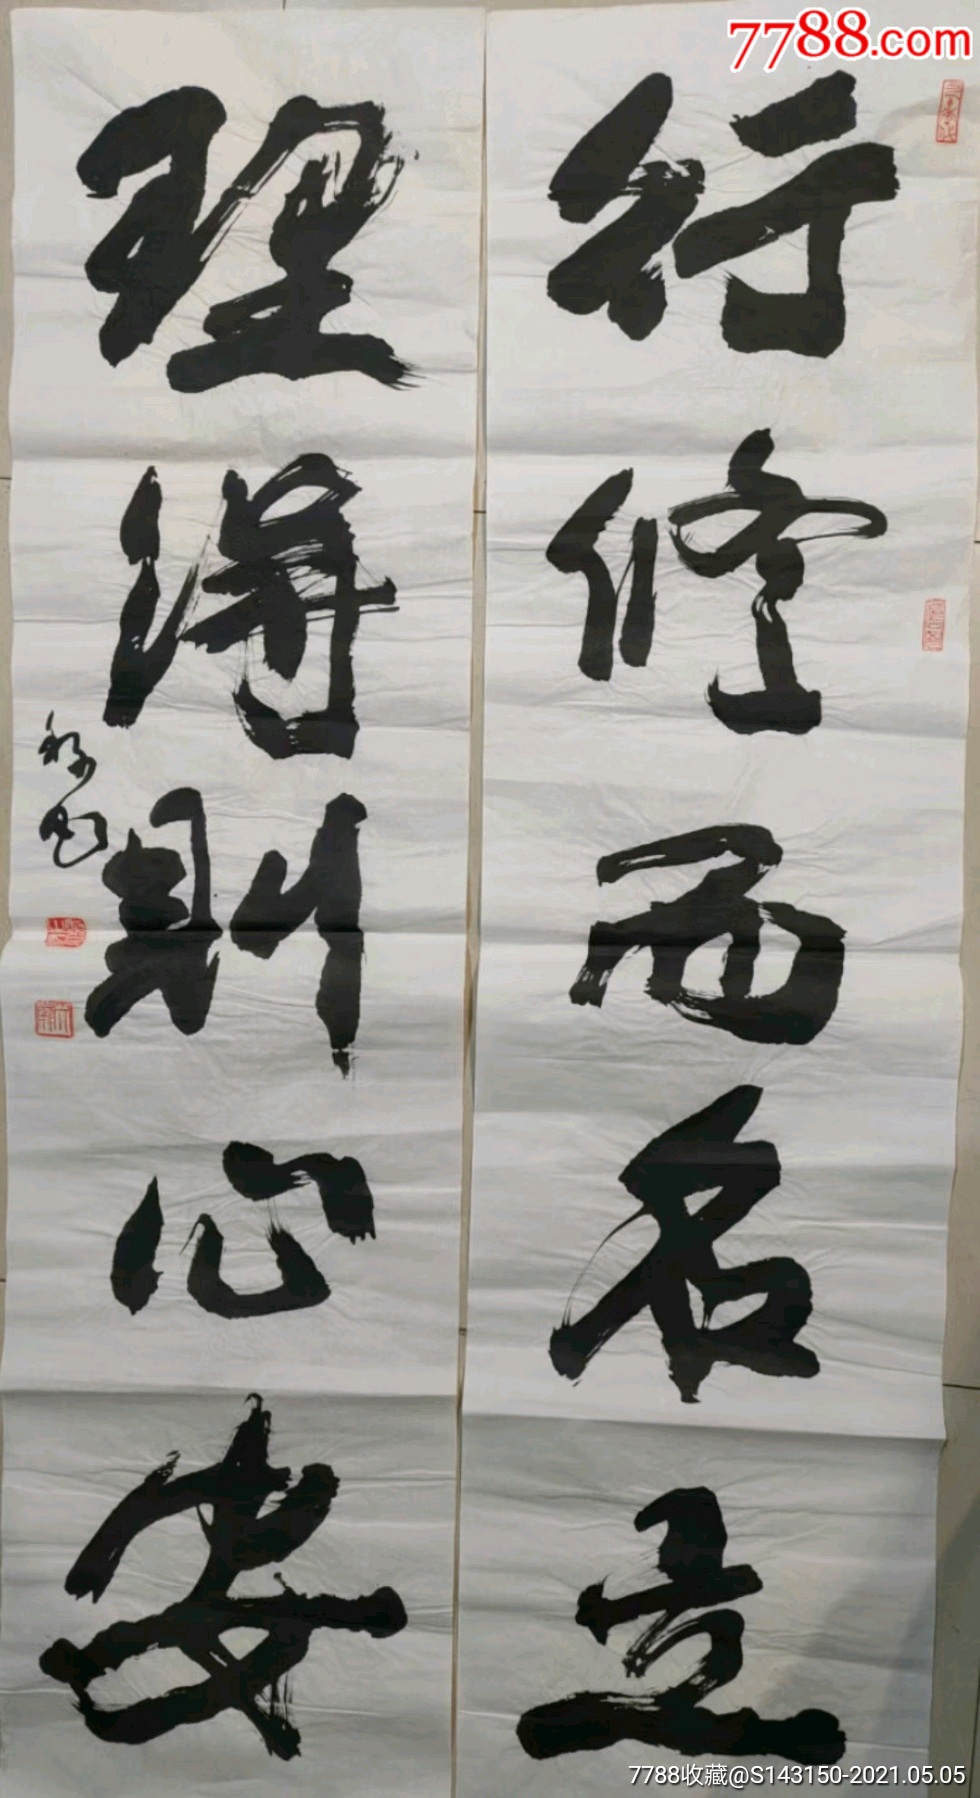 7788.com
行修而名立
理得则心安
7788收藏@S143150-2021.05.05